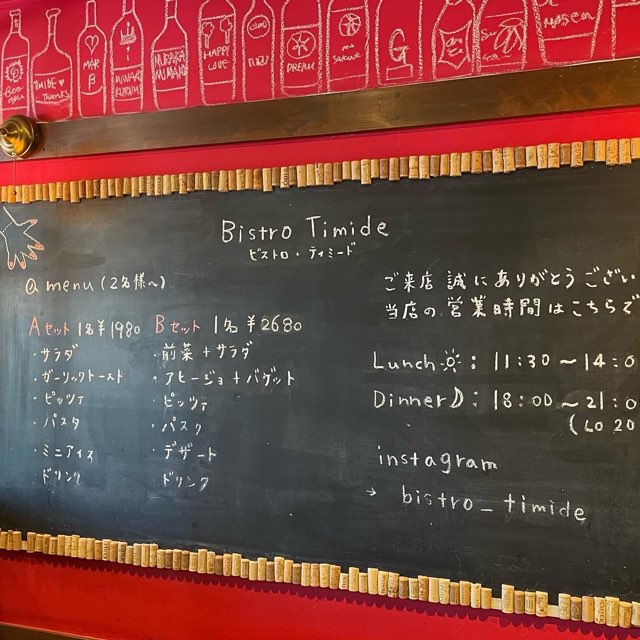 TIMIDE
MAR
MURAKA
MIMAKI
HAPPY
LOVE
DREAM
G
Bistro Timide
ビストロ・ティミード
@ menu (2名様〜)
Aセット 1名¥1980
・サラダ
・ガーリックトースト
・ピッツァ
・パスタ
・ミニアイス
・ドリンク
Bセット 1名¥2680
・前菜+サラダ
・アヒージョ+バゲット
・ピッツァ
・パスタ
・デザート
・ドリンク
ご来店 誠にありがとうござい
当店の営業時間はこちらで
Lunch : 11:30〜14:0
Dinner : 18:00〜21:0
(LO 20
instagram
→ bistro_timide